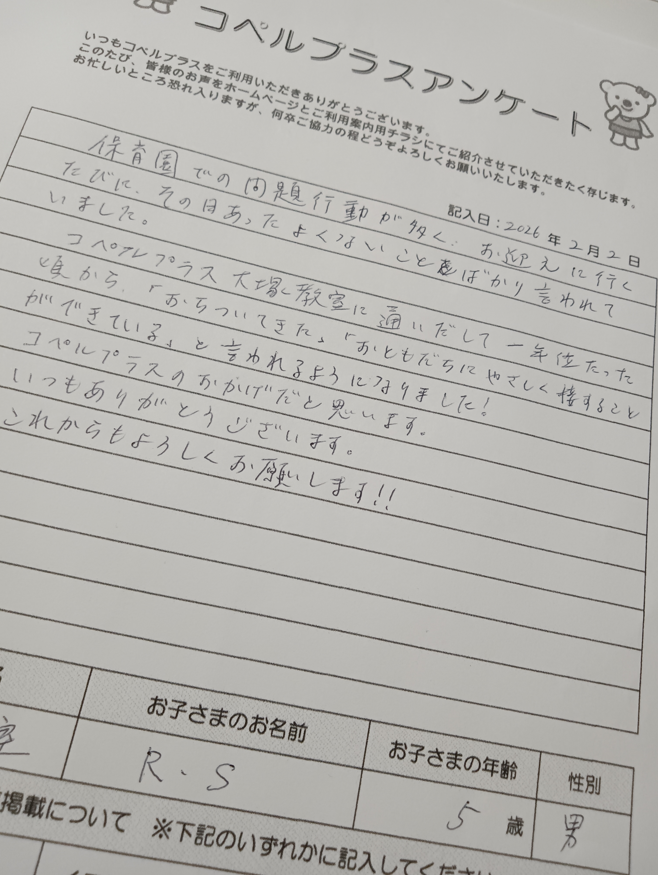 コペルプラスアンケート
いつもコペルプラスをご利用いただきありがとうございます。
このたび、皆様のお声をホームページとご利用案内用チラシにてご紹介させていただきたく存じます。
お忙しいところ恐れ入りますが、何卒ご協力の程どうぞよろしくお願いいたします。
記入日：2026年2月2日
保育園での問題行動が多く、お迎えに行く
たびに、その日あったよくないことばかり言われて
いました。
コペルプラス大塚教室に通いだして一年位たった
頃から、「おちついてきた」「おともだちにやさしく接すること
ができている」と言われるようになりました！
コペルプラスのおかげだと思います。
いつもありがとうございます。
これからもよろしくお願いします!!
お子さまのお名前
お子さまの年齢
性別
R.S
5歳
男
掲載について ※下記のいずれかに記入してください